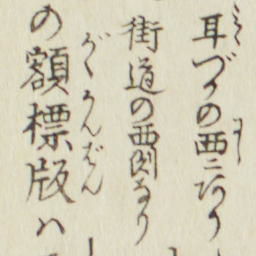 耳づかの西ニあり
街道の西側なり
の額標版ハ